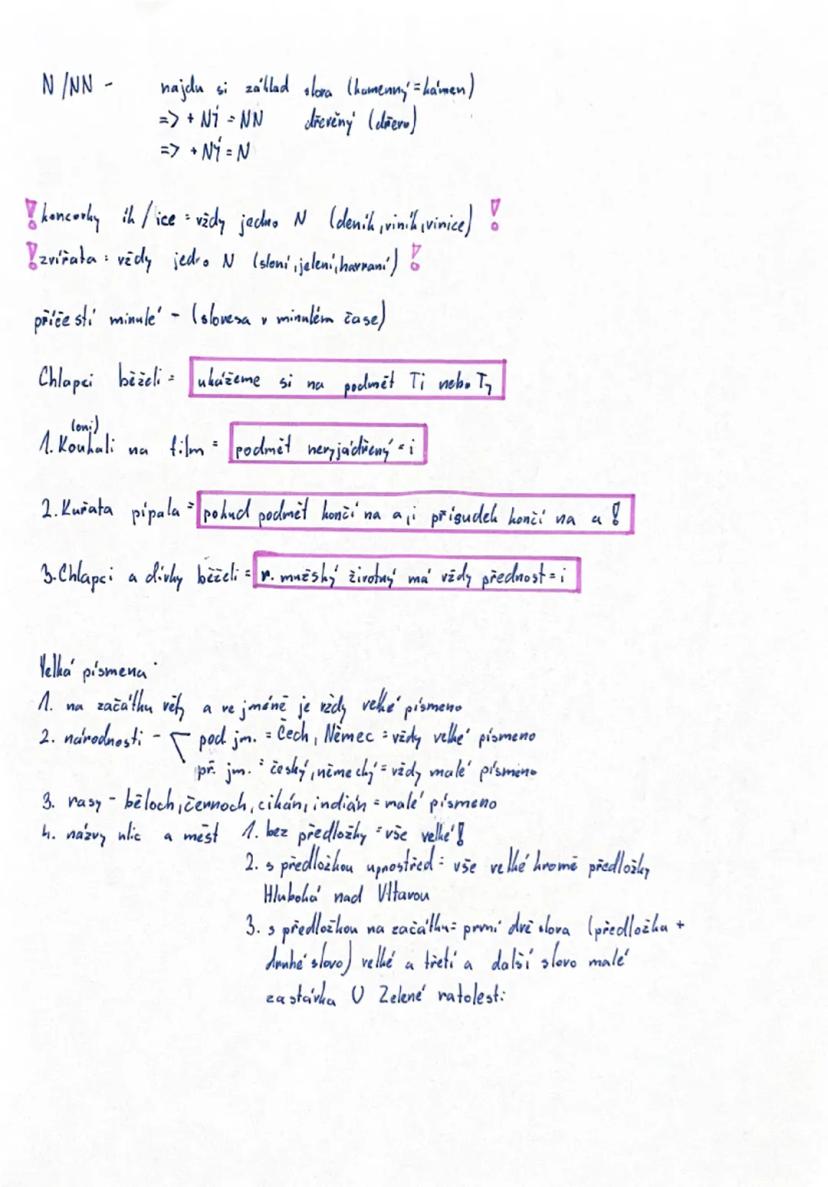 N/NN - najdu si základ slova (kamenný = kámen)
=> + NÍ = NN dřevěný (dřevo)
=> + NÝ = N
! koncovky ík/ice = vždy jedno N (deník, viník, vinice) !
! zvířata = vždy jedno N (sloní, jelení, havraní) !
příčestí minulé - (slovesa v minulém čase)
Chlapci běželi = ukážeme si na podmět Ti nebo Ty
(oni)
1. Koukali na film = podmět nevyjádřený = i
2. Kuřata pípala = pokud podmět končí na a, i přísudek končí na a !
3. Chlapci a dívky běželi = r. mužský životný má vždy přednost = i
Velká písmena
1. na začátku věty a ve jméně je vždy velké písmeno
2. národnosti - pod jm. = Čech, Němec = vždy velké písmeno
př. jm. = český, německý = vždy malé písmeno
3. rasy - běloch, černoch, cikán, indián = malé písmeno
4. názvy ulic a měst 1. bez předložky = vše velké !
2. s předložkou uprostřed = vše velké kromě předložky
Hluboká nad Vltavou
3. s předložkou na začátku = první dvě slova (předložka +
druhé slovo) velké a třetí a další slovo malé
zastávka U Zelené ratolesti